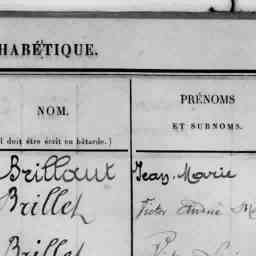 HABÉTIQUE.
NOM.
PRÉNOMS
ET SURNOMS.
l doit être écrit en bâtarde.)
Brillaut Jean-Marie
Brillet Victor Aimé M
Brillet